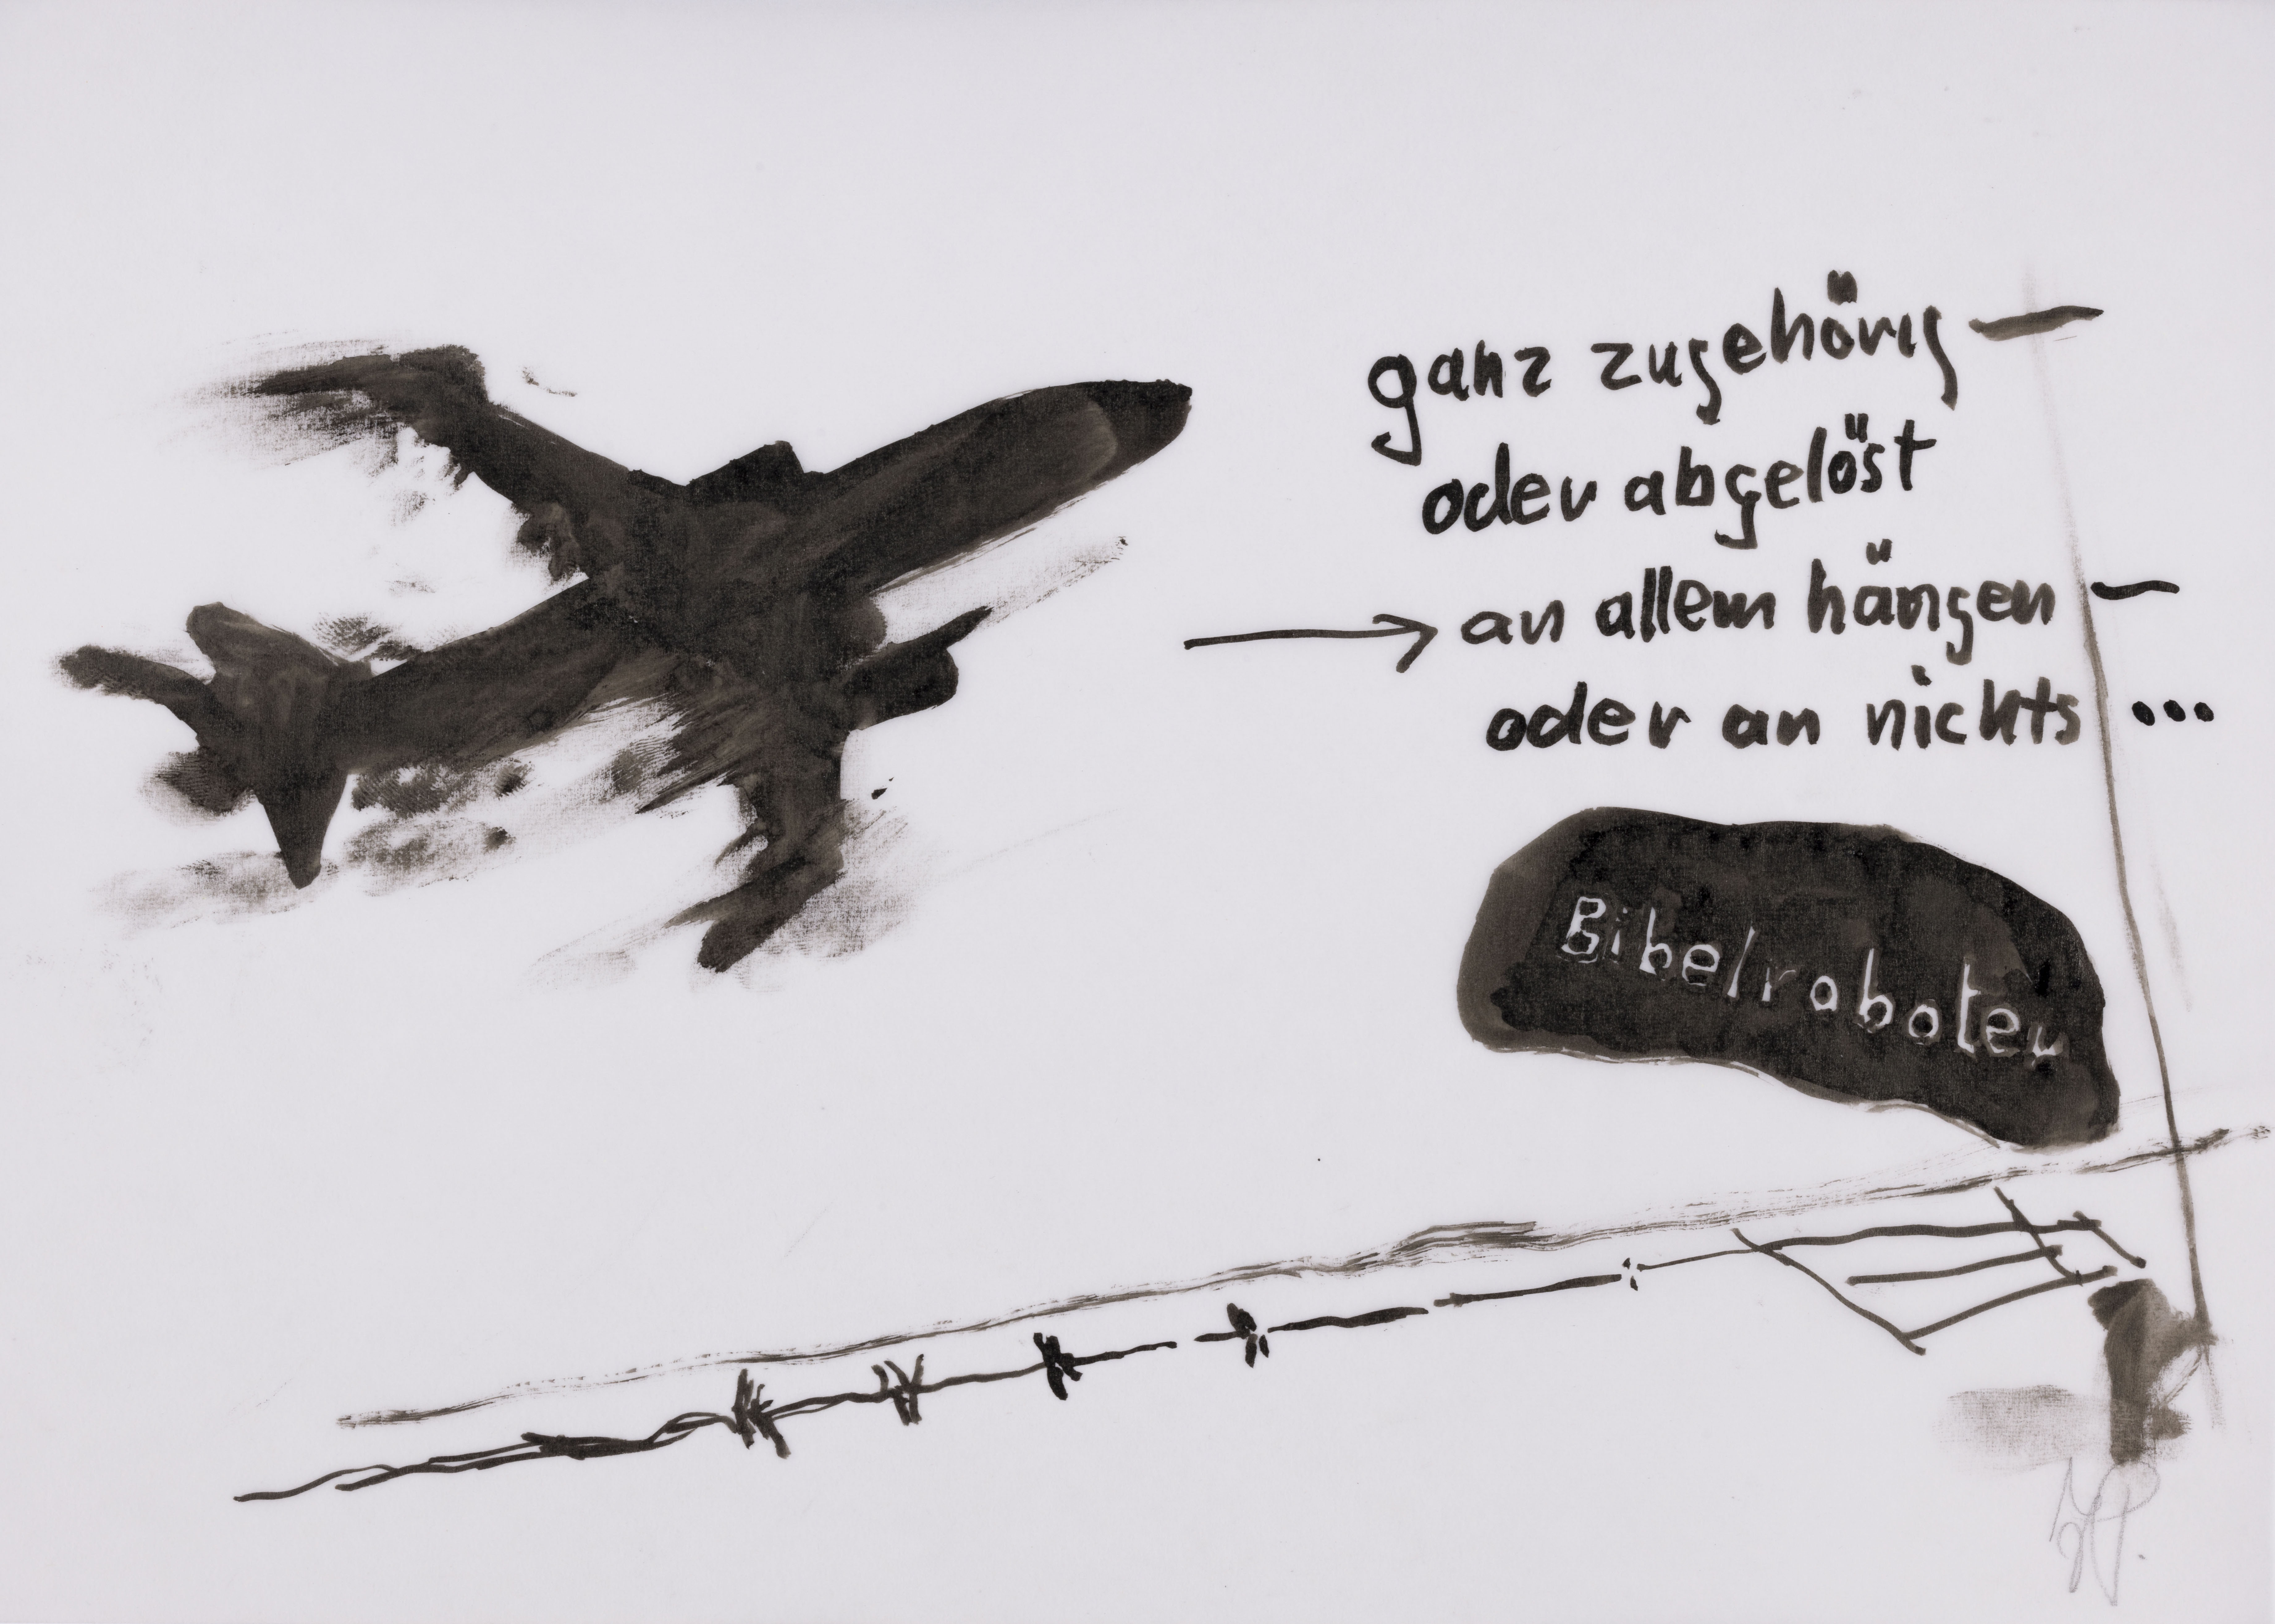 ganz zugehörig —
oder abgelöst
→ an allem hängen —
oder an nichts ...
Bibelroboter